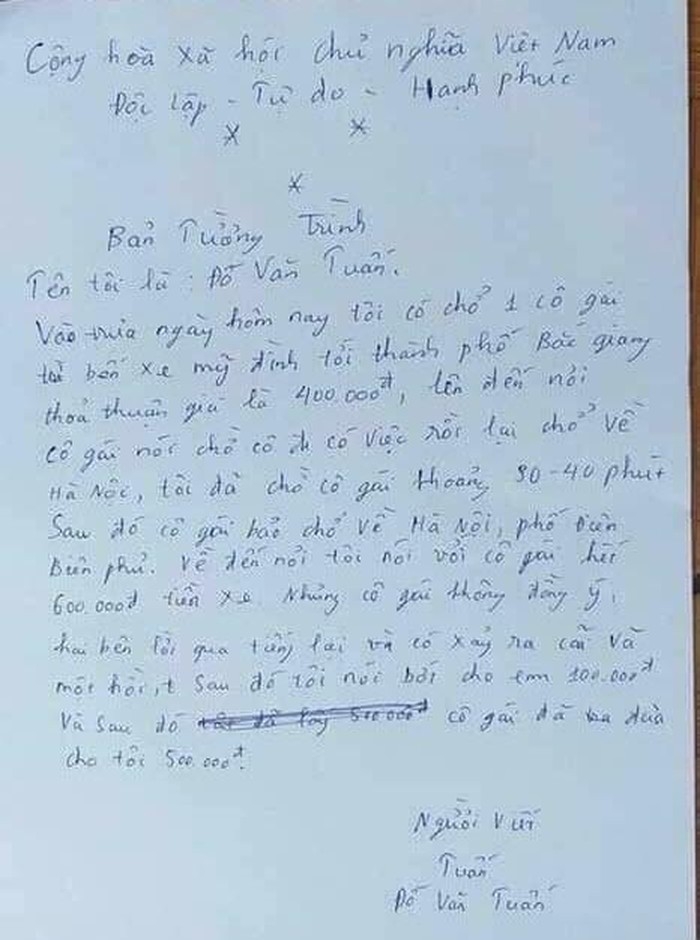 Cộng hoà xã hội chủ nghĩa Việt Nam
Độc lập - Tự do - Hạnh phúc
Bản Tường Trình
Tên tôi là : Đỗ Văn Tuấn.
Vào trưa ngày hôm nay tôi có chở 1 cô gái
từ bến xe mỹ đình tới thành phố Bắc giang
thoả thuận giá là 400.000đ, lên đến nơi
cô gái nói chờ cô đi có việc rồi lại chở về
Hà Nội, tôi đã chờ cô gái khoảng 30-40 phút
Sau đó cô gái bảo chở về Hà Nội, phố Điện
Biên phủ. Về đến nơi tôi nói với cô gái hết
600.000đ tiền xe. Nhưng cô gái không đồng ý,
hai bên lời qua tiếng lại và có xảy ra cãi vã
một hồi, Sau đó tôi nói bớt cho em 100.000đ
Và sau đó tôi đã lấy 500.000đ cô gái đã đưa
cho tôi 500.000đ.
Người viết
Tuấn
Đỗ Văn Tuấn